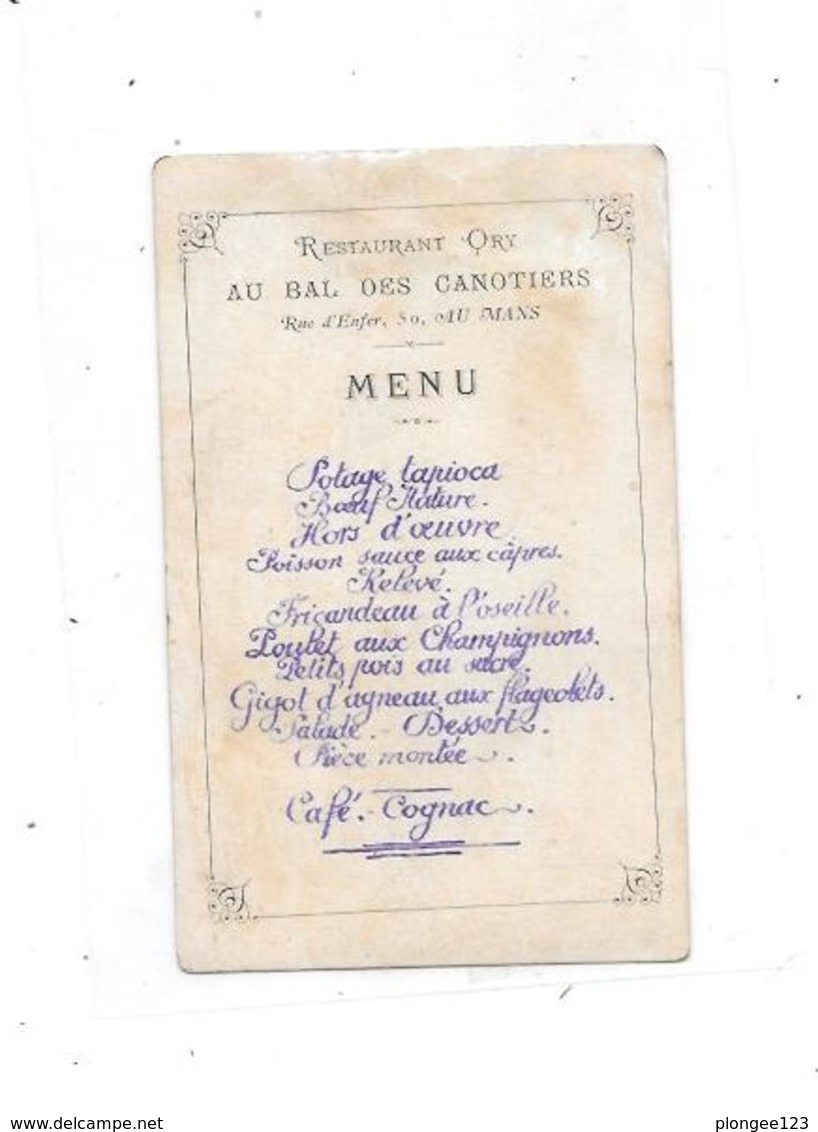 RESTAURANT ORY
AU BAL DES CANOTIERS
Rue d'Enfer, 50, AU MANS
MENU
Potage tapioca
Bœuf Nature.
Hors d'œuvre
Poisson sauce aux câpres.
Relevé.
Friçandeau à l'oseille.
Poulet aux Champignons.
Petits pois au sucre.
Gigot d'agneau aux flageolets.
Salade. - Desserts.
Pièce montée.
Café. - Cognac.
www.delcampe.net
plongee123